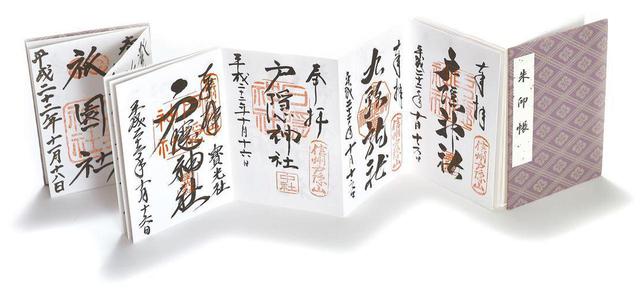 朱印帳
奉拝
信州戸隠山
戸隠神社
平成二十二年十月十六日
奉拝
信州戸隠山
九頭龍社
平成二十二年十月十六日
奉拝
中社
戸隠神社
平成二十二年十月十六日
奉拝
寶光社
戸隠神社
平成二十二年十月十六日
祇園社